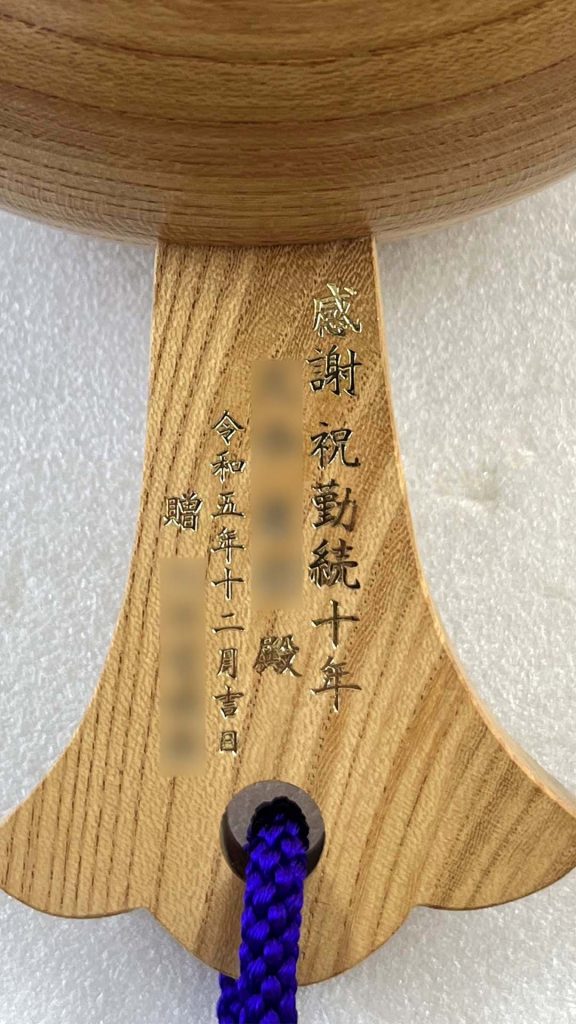 感謝 祝勤続十年
殿
令和五年十二月吉日
贈